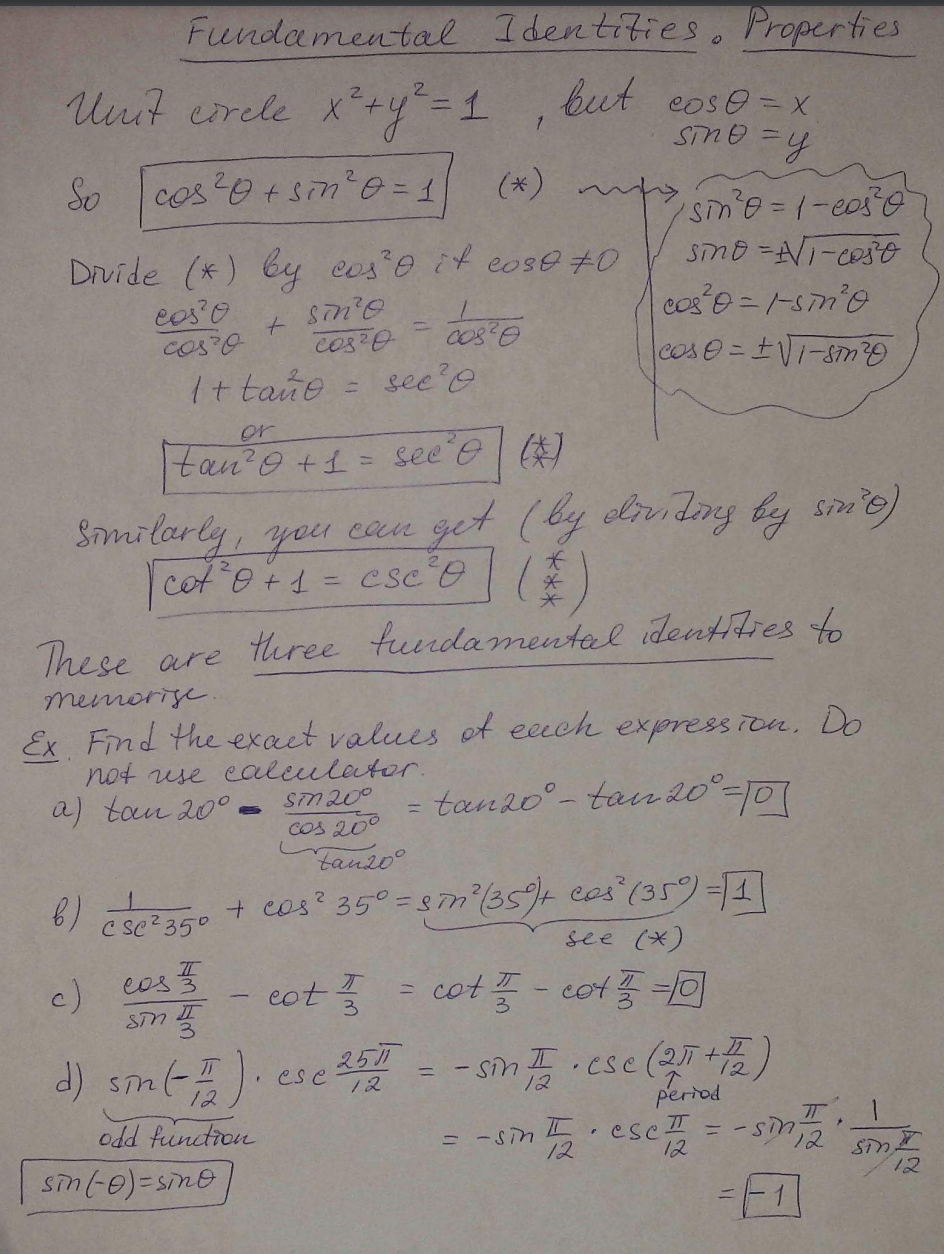 Fundamental Identities. Properties
Unit circle x²+y²=1 , but cosθ = x
sinθ = y
So cos²θ + sin²θ = 1 (*)
sin²θ = 1-cos²θ
sinθ = ±√1-cos²θ
cos²θ = 1-sin²θ
cosθ = ±√1-sin²θ
Divide (*) by cos²θ if cosθ ≠0
cos²θ/cos²θ + sin²θ/cos²θ = 1/cos²θ
1 + tan²θ = sec²θ
or
tan²θ + 1 = sec²θ (**)
Similarly, you can get (by dividing by sin²θ)
cot²θ + 1 = csc²θ (***)
These are three fundamental identities to
memorize.
Ex. Find the exact values of each expression. Do
not use calculator.
a) tan 20° - sin20°/cos 20° = tan20° - tan 20° = 0
tan20°
b) 1/csc²35° + cos² 35° = sin²(35°)+ cos²(35°) = 1
see (*)
c) cos π/3 / sin π/3 - cot π/3 = cot π/3 - cot π/3 = 0
d) sin(-π/12) · csc 25π/12 = -sin π/12 · csc (2π + π/12)
period
odd function = -sin π/12 · csc π/12 = -sin π/12 · 1/sin π/12
sin(-θ)=sinθ
= -1